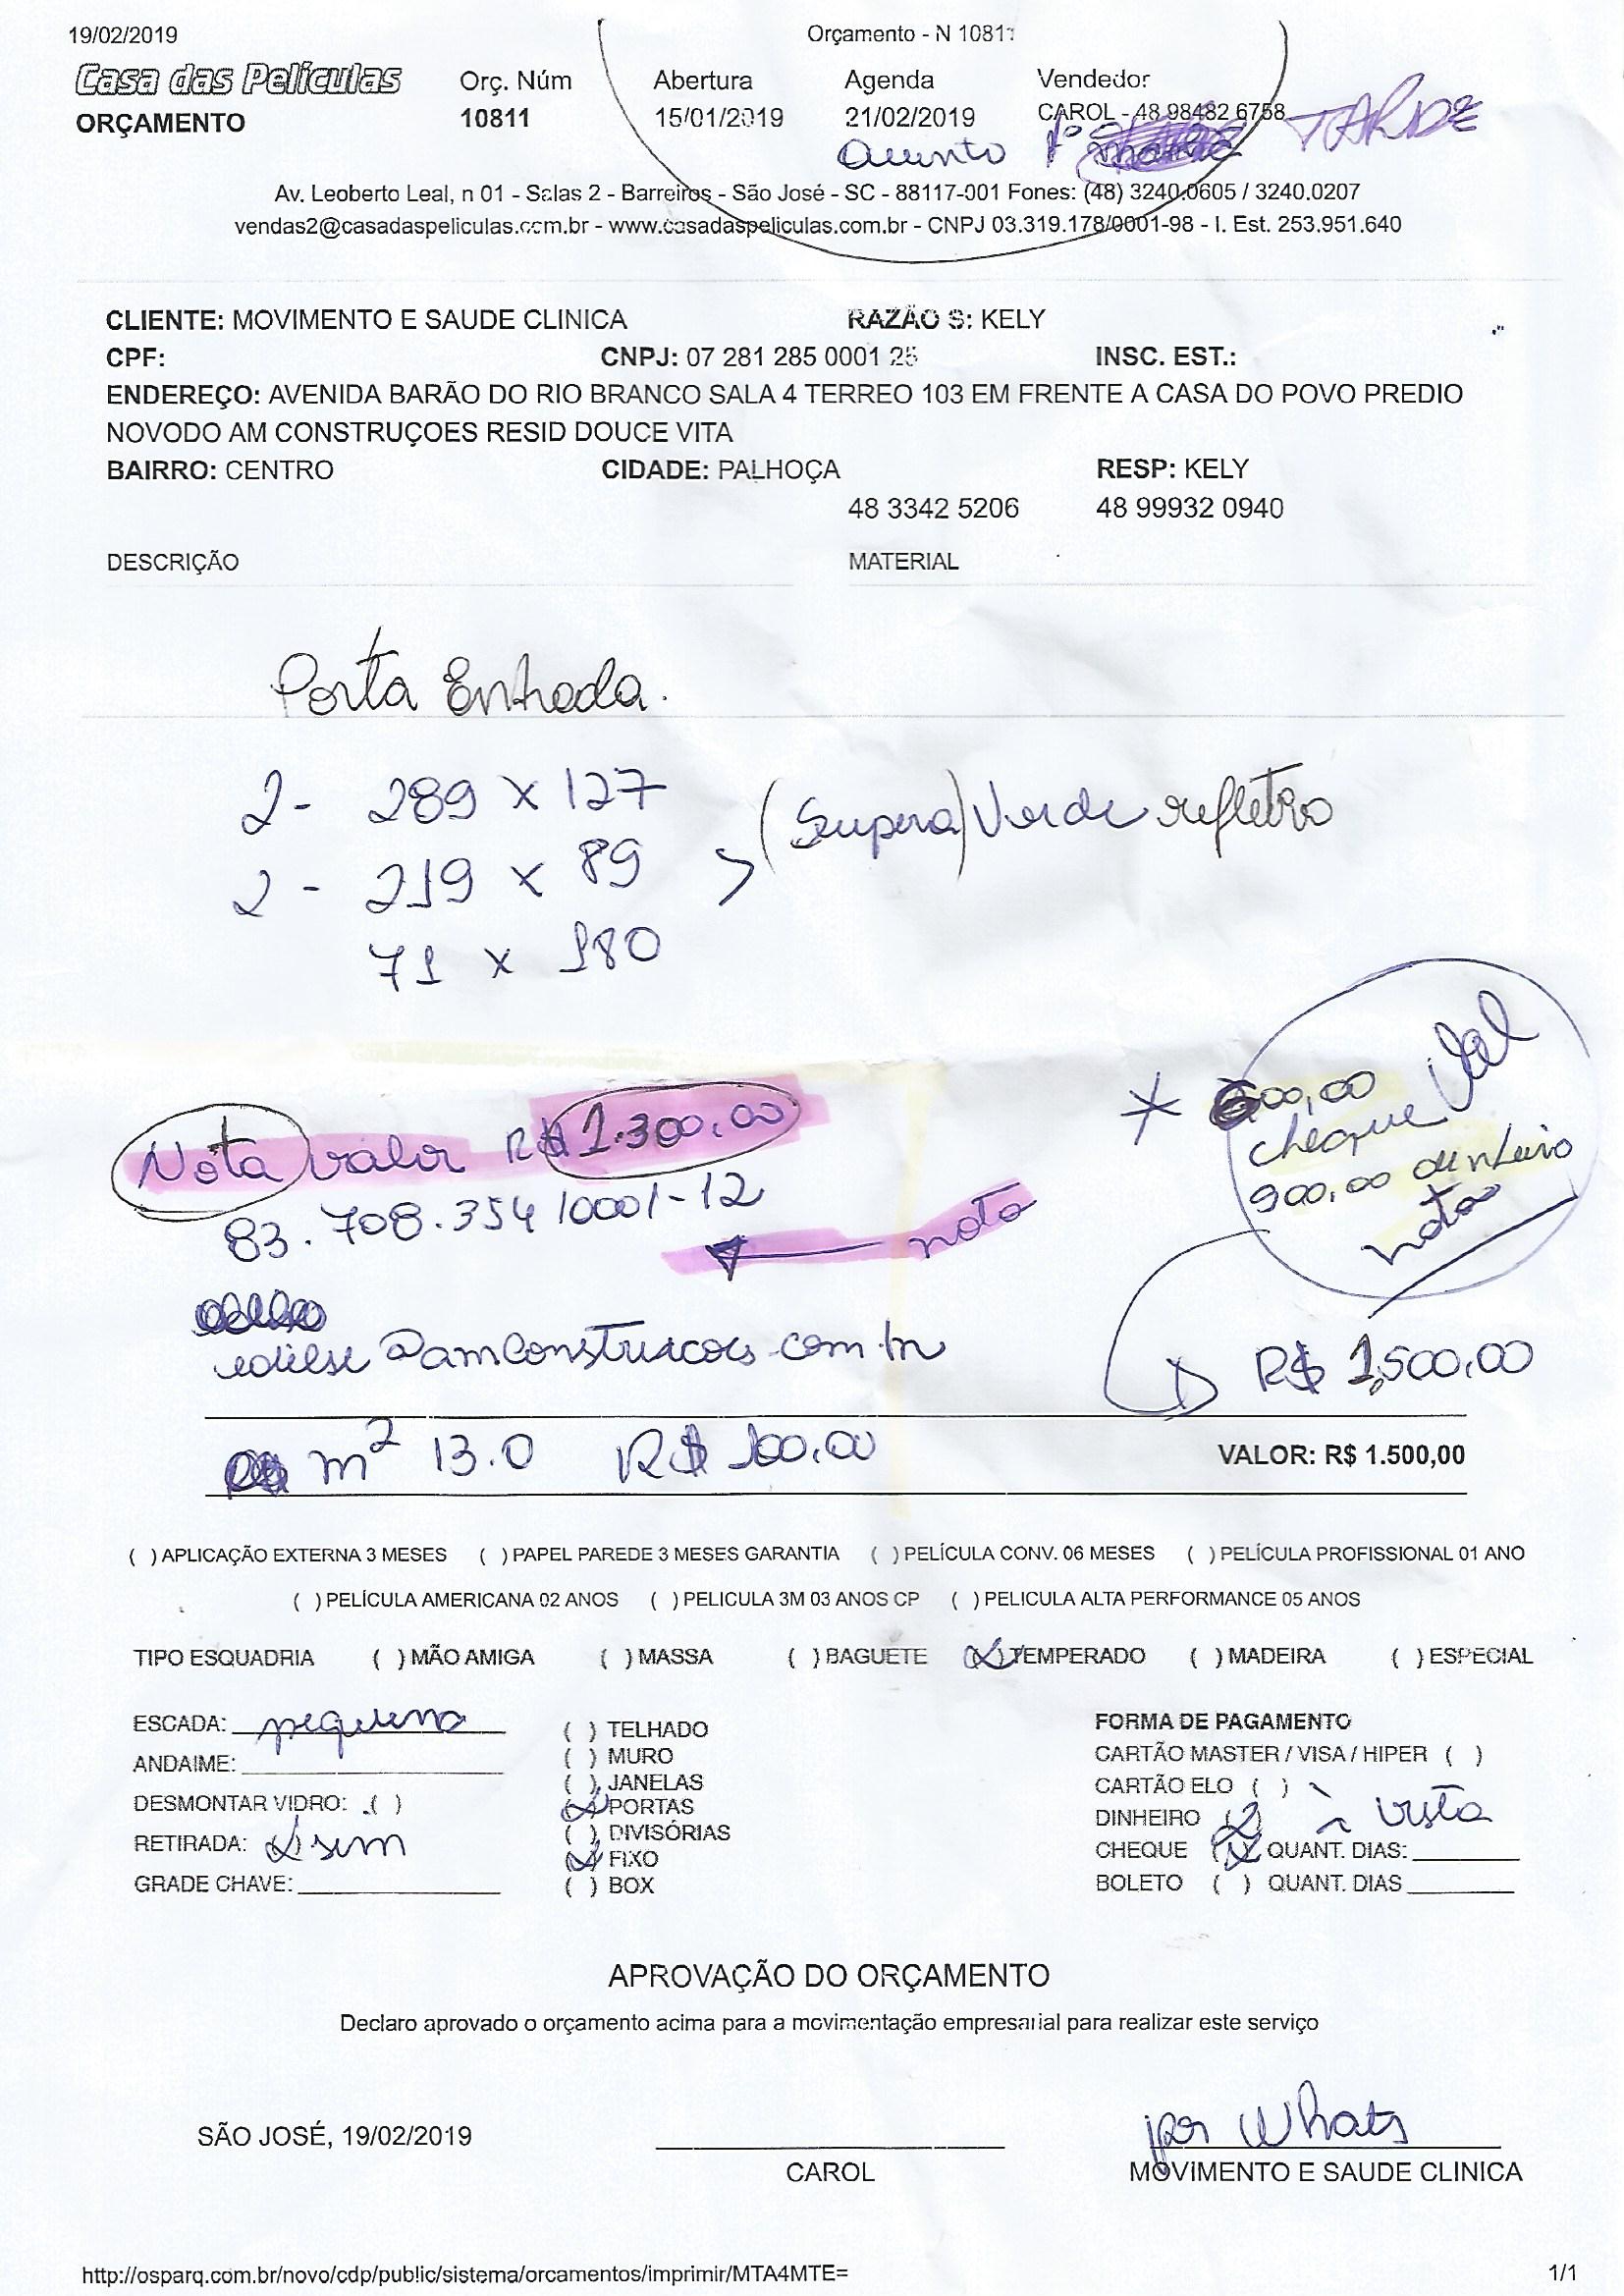 19/02/2019 Orçamento - N 10811
Casa das Películas Orç. Núm Abertura Agenda Vendedor
ORÇAMENTO 10811 15/01/2019 21/02/2019 CAROL - 48 98482 6758 TARDE
Av. Leoberto Leal, n 01 - Salas 2 - Barreiros - São José - SC - 88117-001 Fones: (48) 3240.0605 / 3240.0207
vendas2@casadaspeliculas.com.br - www.casadaspeliculas.com.br - CNPJ 03.319.178/0001-98 - I. Est. 253.951.640
CLIENTE: MOVIMENTO E SAUDE CLINICA RAZÃO S: KELY
CPF: CNPJ: 07 281 285 0001 25 INSC. EST.:
ENDEREÇO: AVENIDA BARÃO DO RIO BRANCO SALA 4 TERREO 103 EM FRENTE A CASA DO POVO PREDIO
NOVODO AM CONSTRUÇOES RESID DOUCE VITA
BAIRRO: CENTRO CIDADE: PALHOÇA RESP: KELY
48 3342 5206 48 99932 0940
DESCRIÇÃO MATERIAL
Porta Entrada.
2 - 289 x 127
(Supera) Verde refletivo
2 - 219 x 89
71 x 180
* 600,00
cheque
900,00 dinheiro
nota
Nota valor R$ 1.300,00
83.708.354/0001-12
nota
edilse@amconstrucoes.com.br
R$ 1,500,00
m² 13.0 R$ 100,00 VALOR: R$ 1.500,00
( ) APLICAÇÃO EXTERNA 3 MESES ( ) PAPEL PAREDE 3 MESES GARANTIA ( ) PELÍCULA CONV. 06 MESES ( ) PELÍCULA PROFISSIONAL 01 ANO
( ) PELÍCULA AMERICANA 02 ANOS ( ) PELICULA 3M 03 ANOS CP ( ) PELICULA ALTA PERFORMANCE 05 ANOS
TIPO ESQUADRIA ( ) MÃO AMIGA ( ) MASSA ( ) BAGUETE (X) TEMPERADO ( ) MADEIRA ( ) ESPECIAL
ESCADA: pequena
ANDAIME:
DESMONTAR VIDRO: ( )
RETIRADA: (X) sem
GRADE CHAVE:
( ) TELHADO
( ) MURO
( ) JANELAS
(X) PORTAS
( ) DIVISÓRIAS
(X) FIXO
( ) BOX
FORMA DE PAGAMENTO
CARTÃO MASTER / VISA / HIPER ( )
CARTÃO ELO ( )
DINHEIRO (X) à vista
CHEQUE (X) QUANT. DIAS:
BOLETO ( ) QUANT. DIAS
APROVAÇÃO DO ORÇAMENTO
Declaro aprovado o orçamento acima para a movimentação empresarial para realizar este serviço
por Whats
SÃO JOSÉ, 19/02/2019
CAROL MOVIMENTO E SAUDE CLINICA
http://osparq.com.br/novo/cdp/public/sistema/orcamentos/imprimir/MTA4MTE= 1/1